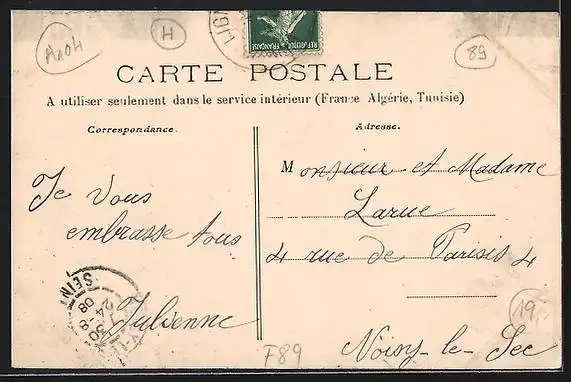 A104
H
89
CARTE POSTALE
A utiliser seulement dans le service intérieur (France Algérie, Tunisie)
Correspondance.
Adresse.
Je vous
embrasse tous
Julienne
Monsieur et Madame
Larue
4 rue de Parisis 4
Noisy-le-Sec
SEINE
24-8
08
F89
19